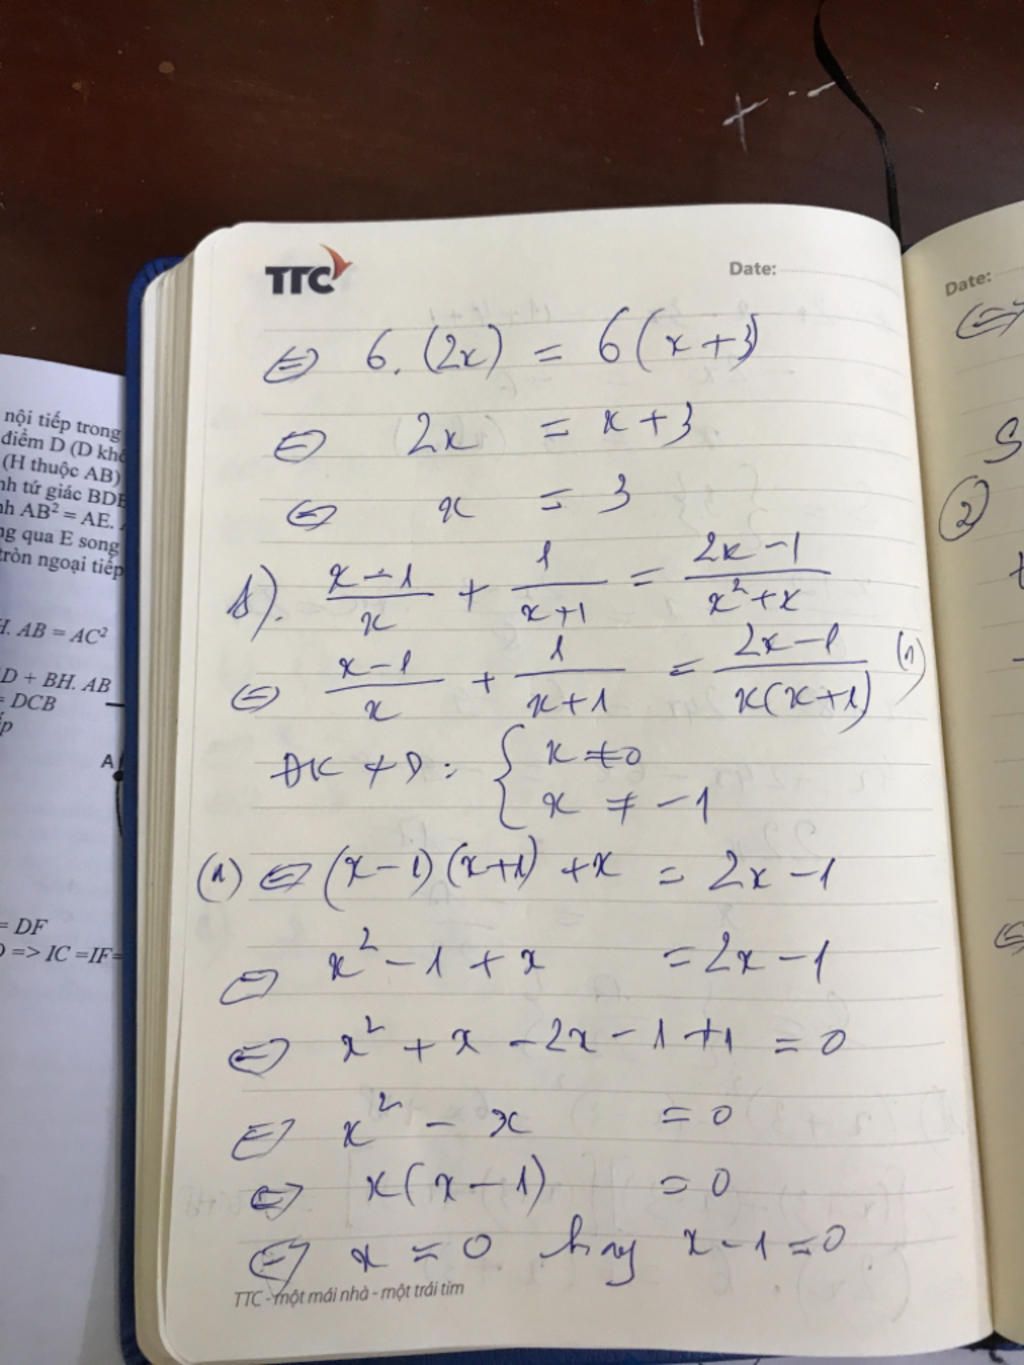 nội tiếp trong
điểm D (D khô
(H thuộc AB)
nh tứ giác BDE
nh AB² = AE.
ng qua E song
tròn ngoại tiếp
H. AB = AC²
D + BH. AB
= DCB
ếp
A
= DF
=> IC =IF=
TTC
Date:
⇔ 6.(2x) = 6(x+3)
⇔ 2x = x+3
⇔ x = 3
b). (x-1)/x + 1/(x+1) = (2x-1)/(x²+x)
⇔ (x-1)/x + 1/(x+1) = (2x-1)/(x(x+1)) (1)
ĐKXĐ: { x ≠ 0
x ≠ -1
(1) ⇔ (x-1)(x+1) + x = 2x-1
⇔ x² - 1 + x = 2x - 1
⇔ x² + x - 2x - 1 + 1 = 0
⇔ x² - x = 0
⇔ x(x-1) = 0
⇔ x = 0 hay x-1 = 0
TTC - một mái nhà - một trái tim
Date:
S
2